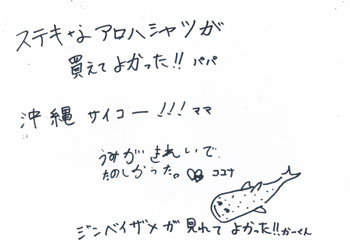 ステキなアロハシャツが
買えてよかった!! パパ
沖縄 サイコー!!! ママ
うみがきれいで
たのしかった。 ココナ
ジンベイザメが見れてよかった!! かーくん